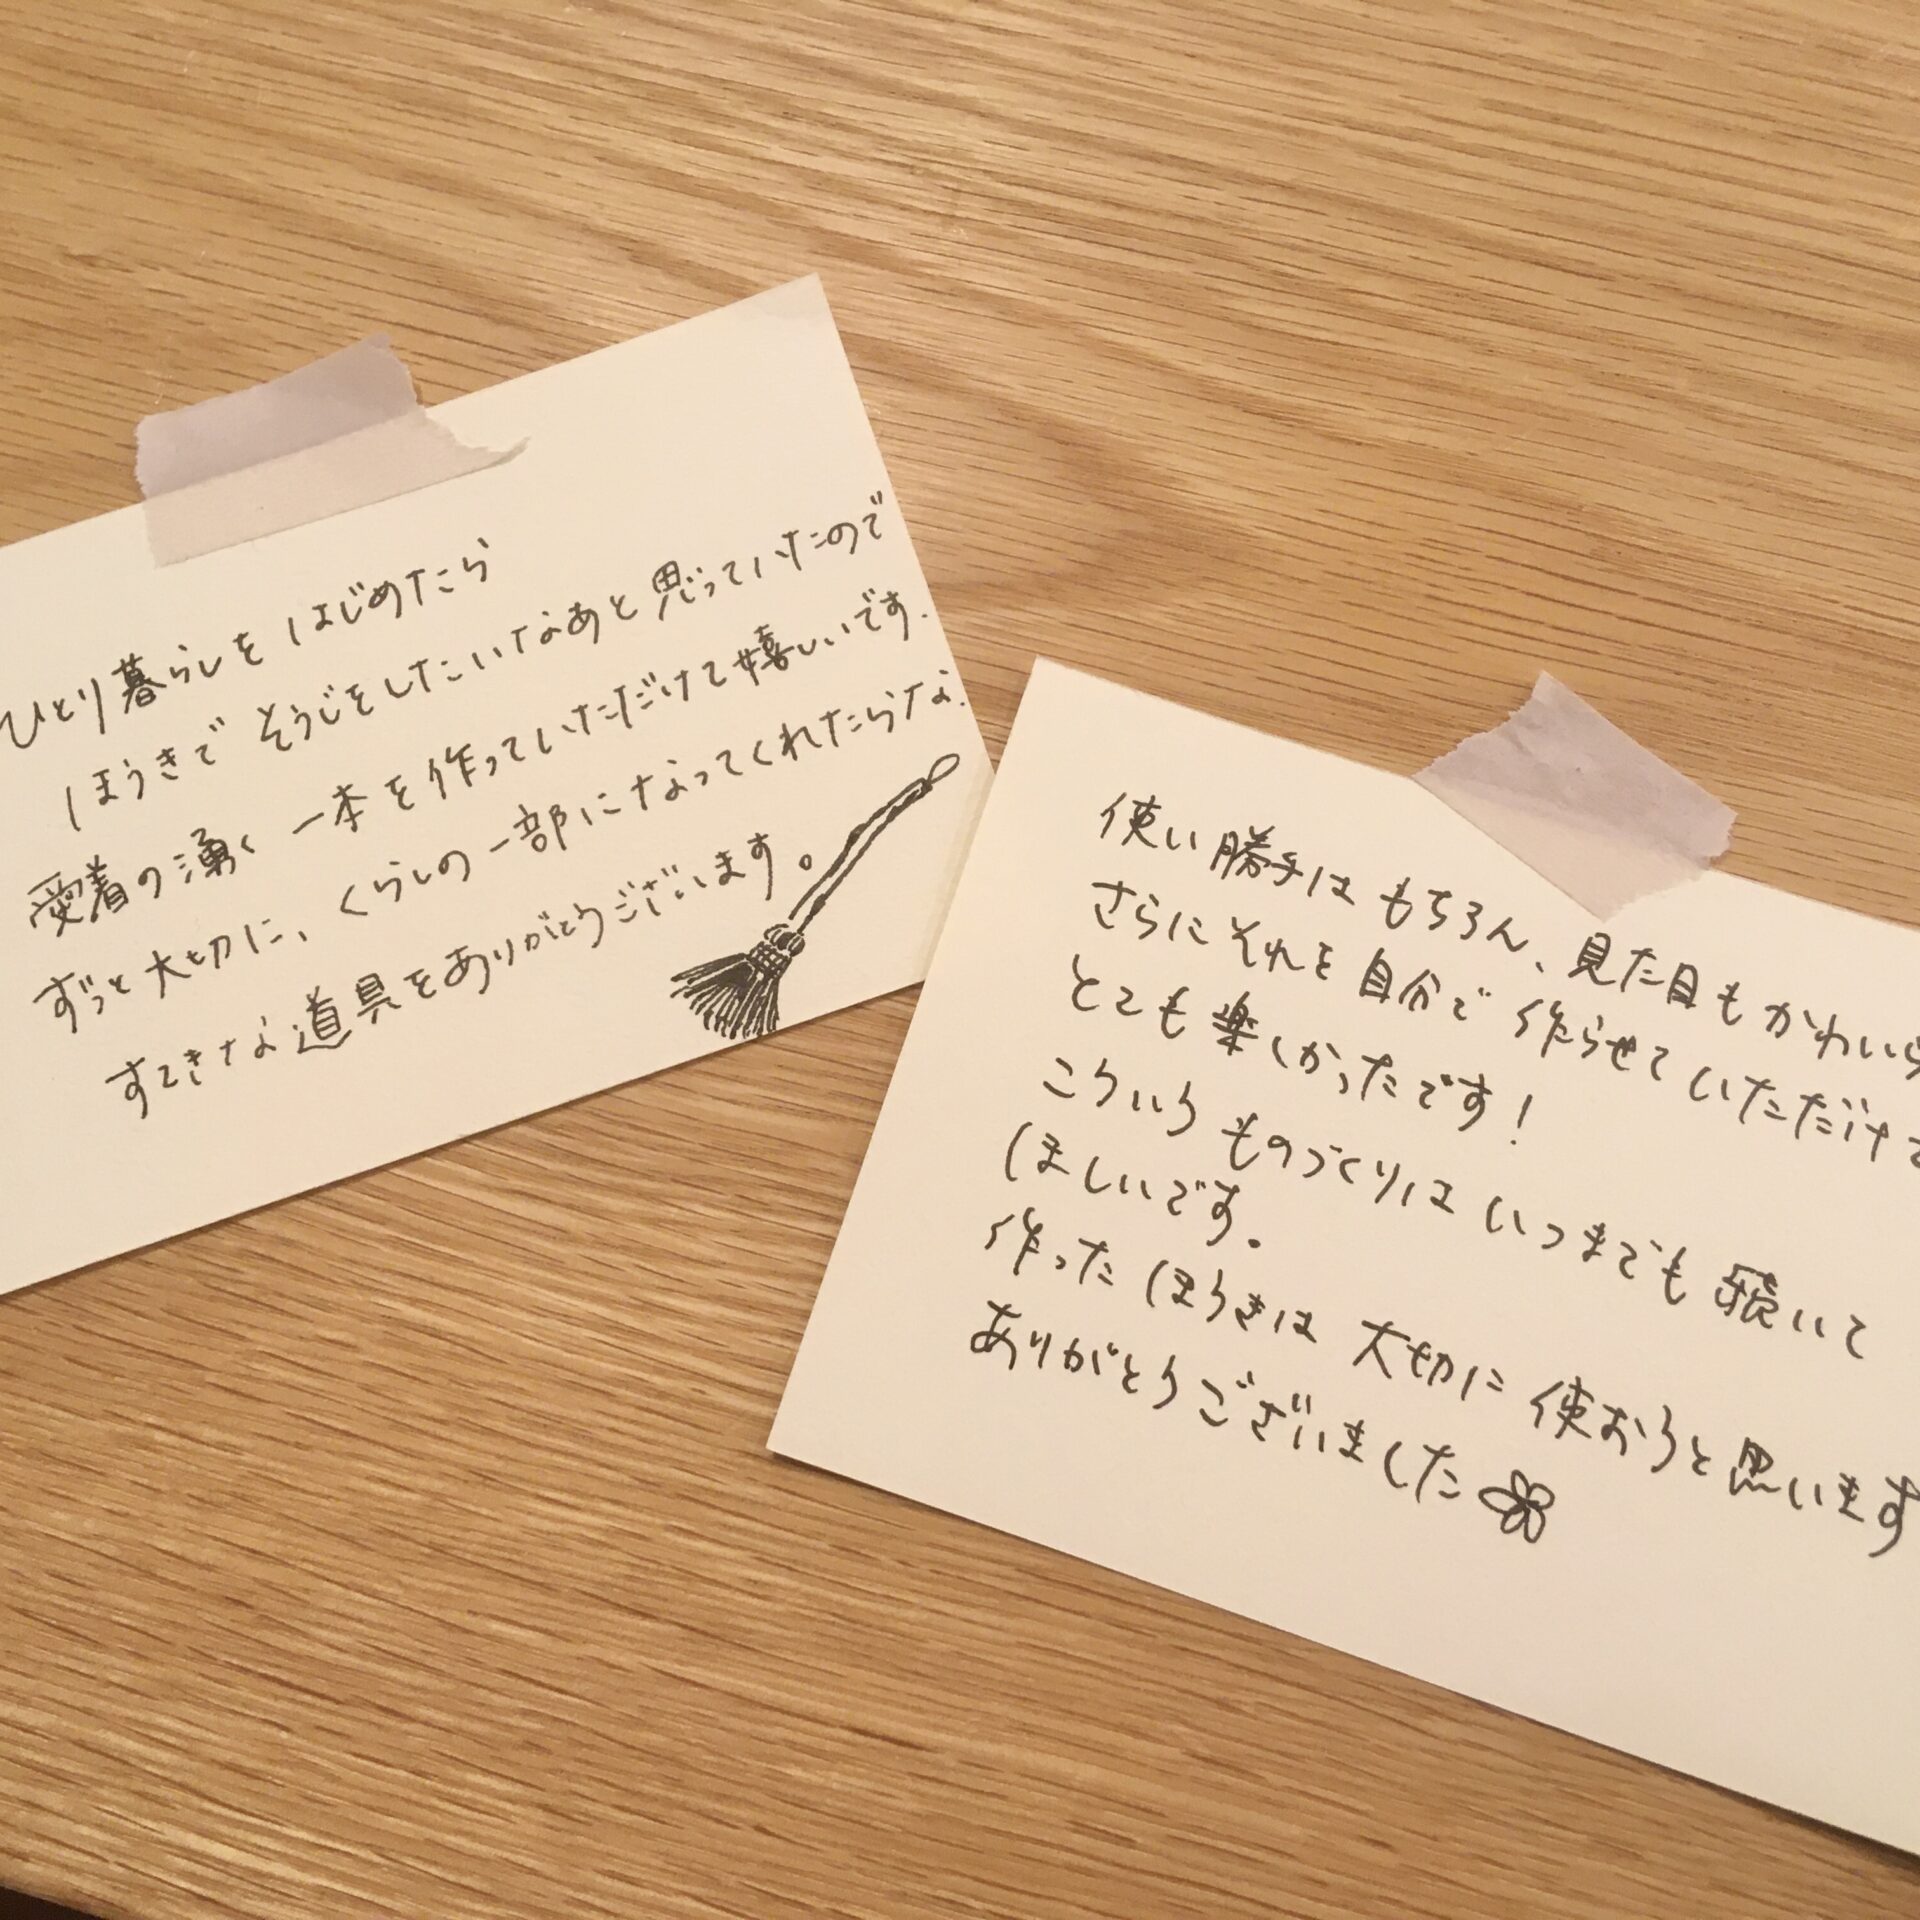 ひとり暮らしを はじめたら
ほうきで そうじをしたいなあと思っていたので
愛着の湧く 一本を作っていただけて嬉しいです.
ずっと大切に、くらしの一部になってくれたらな.
すてきな道具をありがとうございます。
使い勝手は もちろん、見た目もかわいら
さらに それを 自分で 作らせて いただけて
とても楽しかったです!
こういう ものづくりは いつまでも 続いて
ほしいです。
作った ほうきは 大切に 使おうと思います
ありがとうございました